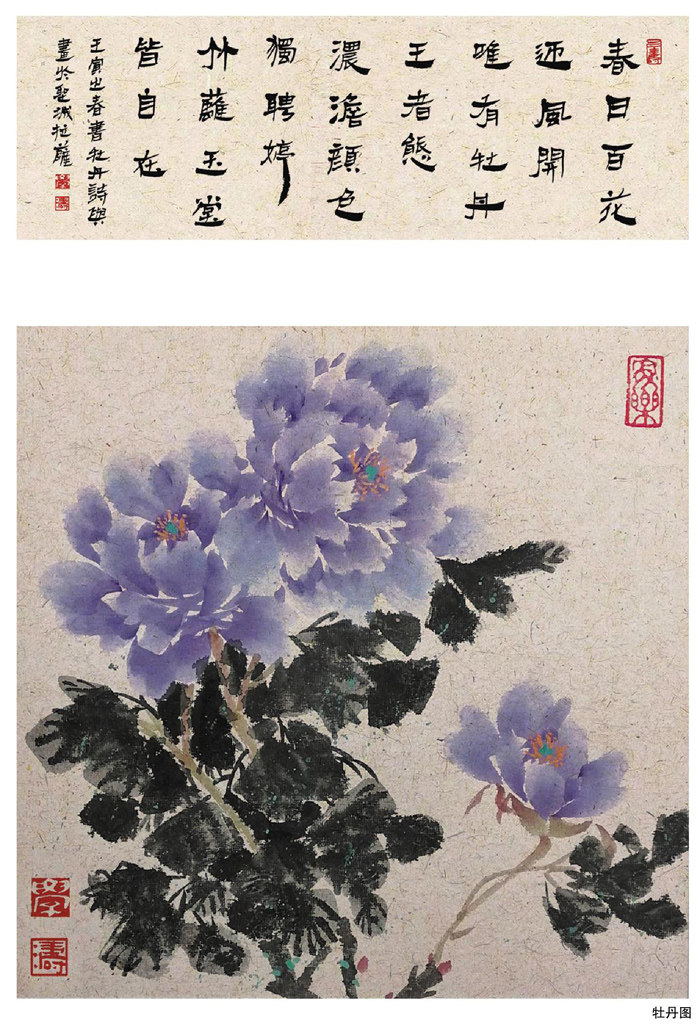 春日百花
迎風開
唯有牡丹
王者態
濃澹顏色
獨聘婷
竹蘺玉堂
皆自在
壬寅之春書牡丹詩與
畫於聖城拉薩
學
濤
牡丹图